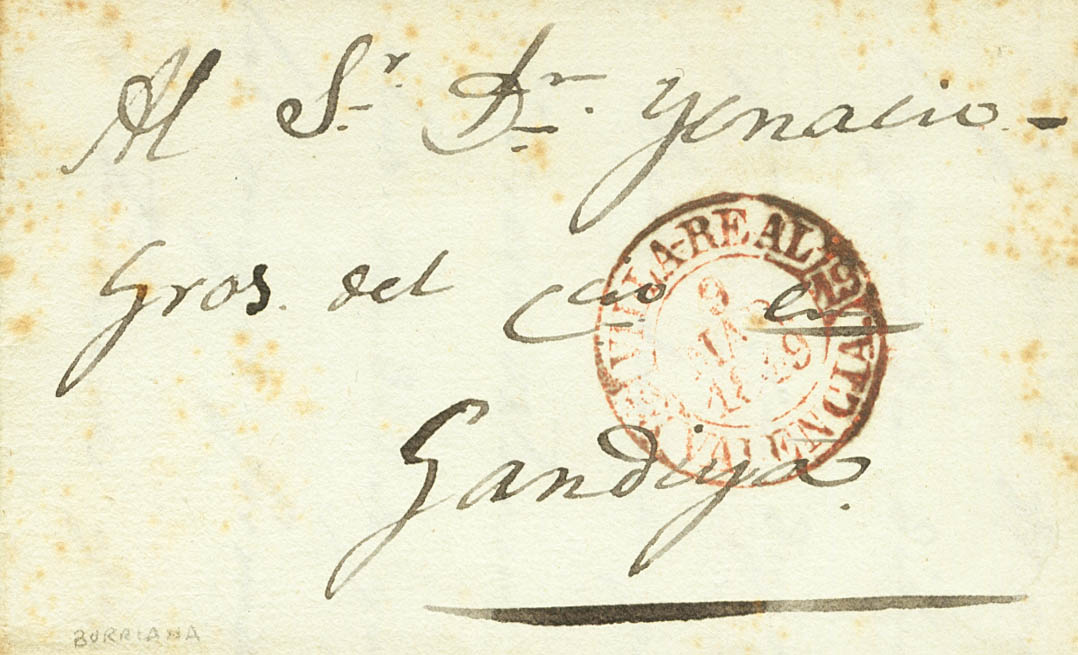 Al Sr. Dn. Ygnacio
Gros. del Ccio en
Gandiya.
VILLA-REAL
VALENCIA.
9
BURRIANA